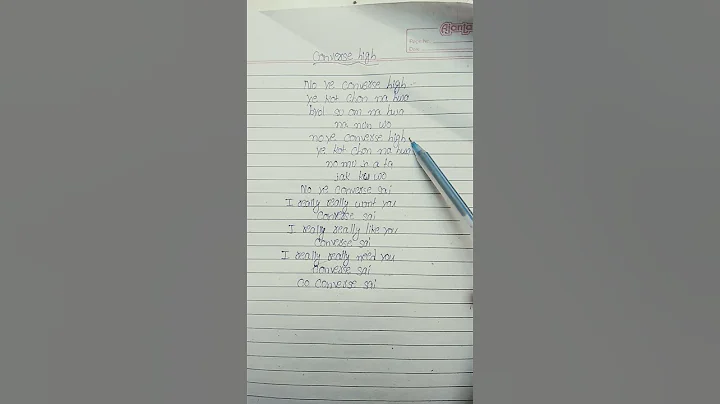 Ajanta
Page No.
Date
Converse high
No ye converse high
ye kot chon na hwa
byol so om na hwa
na nun wo
no ye converse high
ye kot chon na hwa
no mu so a ta
jak ku wo
No ye converse sai
I really really want you
Converse sai
I really really like you
Converse sai
I really really need you
Converse sai
Co converse sai